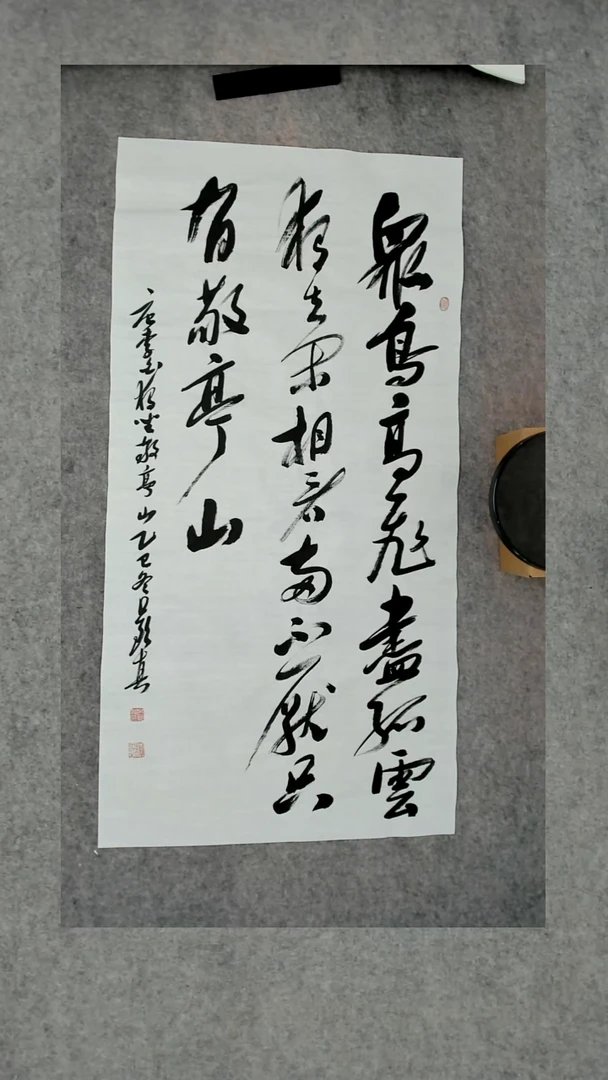 眾鳥高飛盡孤雲
獨去閑相看兩不厭只
有敬亭山
唐李白獨坐敬亭山乙巳冬日真